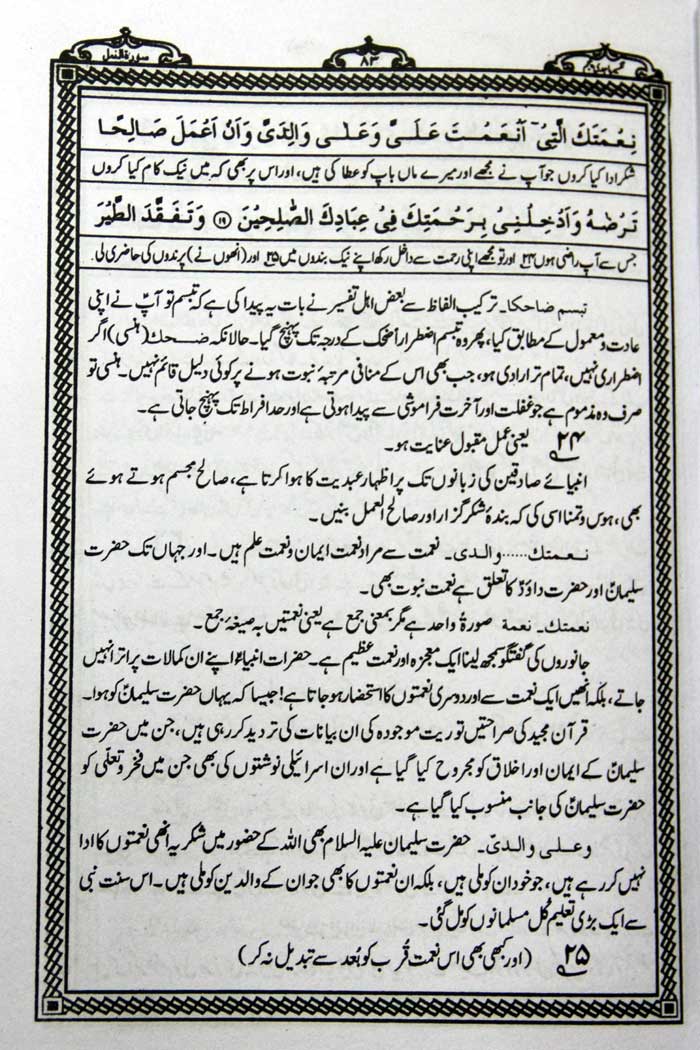 سورۃ النمل
۸۳
نِعْمَتَكَ الَّتِيْٓ اَنْعَمْتَ عَلَيَّ وَعَلٰى وَالِدَيَّ وَاَنْ اَعْمَلَ صَالِحًا
شکر ادا کیا کروں جو آپ نے مجھے اور میرے ماں باپ کو عطا کی ہیں، اور اس پر بھی کہ میں نیک کام کیا کروں
تَرْضٰىهُ وَاَدْخِلْنِيْ بِرَحْمَتِكَ فِيْ عِبَادِكَ الصّٰلِحِيْنَ ۱۹ وَتَفَقَّدَ الطَّيْرَ
جس سے آپ راضی ہوں ۲۴ اور تو مجھے اپنی رحمت سے داخل رکھ اپنے نیک بندوں میں ۲۵ اور (انھوں نے) پرندوں کی حاضری لی۔
تبسم ضاحکا۔ ترکیب الفاظ سے بعض اہل تفسیر نے بات یہ پیدا کی ہے کہ تبسم تو آپؑ نے اپنی
عادت و معمول کے مطابق کیا، پھر وہ تبسم اضطراراً ضحک کے درجہ تک پہنچ گیا۔ حالانکہ ضحك (ہنسی) اگر
اضطراری نہیں، تمام تر ارادی ہو، جب بھی اس کے منافی مرتبۂ نبوت ہونے پر کوئی دلیل قائم نہیں۔ ہنسی تو
صرف وہ مذموم ہے جو غفلت اور آخرت فراموشی سے پیدا ہوتی ہے اور حد افراط تک پہنچ جاتی ہے۔
۲۴ یعنی عمل مقبول عنایت ہو۔
انبیائے صادقین کی زبانوں تک پر اظہار عبدیت کا ہوا کرتا ہے، صالح مجسم ہوتے ہوئے
بھی، ہوس و تمنا اسی کی کہ بندۂ شکر گزار اور صالح العمل بنیں۔
نعمتك...... والدی۔ نعمت سے مراد نعمت ایمان و نعمت علم ہیں۔ اور جہاں تک حضرت
سلیمانؑ اور حضرت داؤدؑ کا تعلق ہے نعمت نبوت بھی۔
نعمتك۔ نعمة صورۃً واحد ہے مگر بمعنی جمع ہے یعنی نعمتیں بہ صیغۂ جمع۔
جانوروں کی گفتگو سمجھ لینا ایک معجزہ اور نعمت عظیم ہے۔ حضرات انبیاءؑ اپنے ان کمالات پر اترا نہیں
جاتے، بلکہ انھیں ایک نعمت سے اور دوسری نعمتوں کا استحضار ہو جاتا ہے! جیسا کہ یہاں حضرت سلیمانؑ کو ہوا۔
قرآن مجید کی صراحتیں توریت موجودہ کی ان بیانات کی تردید کر رہی ہیں، جن میں حضرت
سلیمانؑ کے ایمان اور اخلاق کو مجروح کیا گیا ہے اور ان اسرائیلی نوشتوں کی بھی جن میں فخر و تعلّی کو
حضرت سلیمانؑ کی جانب منسوب کیا گیا ہے۔
وعلی والدیّ۔ حضرت سلیمان علیہ السلام بھی اللہ کے حضور میں شکریہ انھی نعمتوں کا ادا
نہیں کر رہے ہیں، جو خود ان کو ملی ہیں، بلکہ ان نعمتوں کا بھی جو ان کے والدین کو ملی ہیں۔ اس سنت نبی
سے ایک بڑی تعلیم کُل مسلمانوں کو مل گئی۔
۲۵ (اور کبھی بھی اس نعمت قُرب کو بُعد سے تبدیل نہ کر)